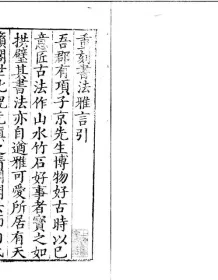 重刻書法雅言引
吾郡有項子京先生博物好古時以己
意匠古法作山水竹石好事者寶之如
拱璧其書法亦自遒雅可愛所居有天
籟閣世